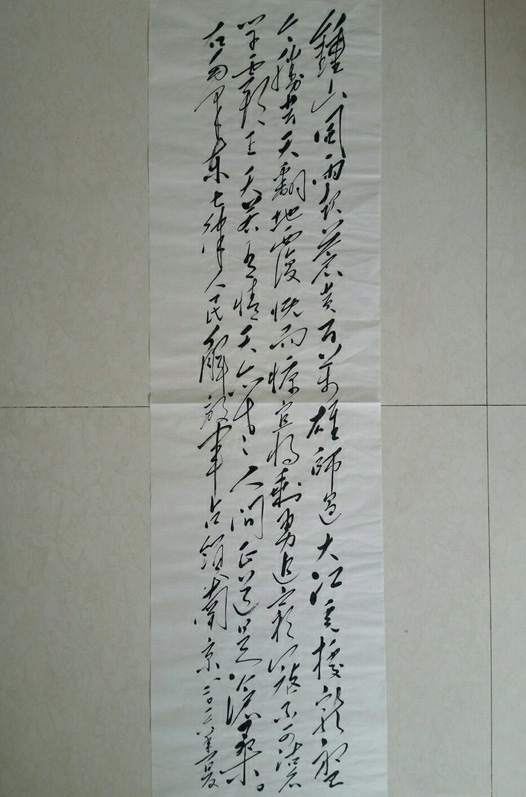 鍾山風雨起蒼黃百萬雄師過大江虎據龍盤
今勝昔天翻地覆慨而慷宜將剩勇追窮寇不可沽名
學霸王天若有情天亦老人間正道是滄桑
右兩毛澤東七律人民解放軍占領南京二〇二